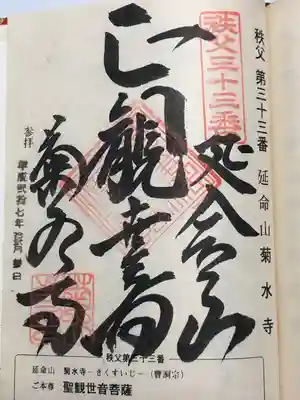 秩父 第三十三番 延命山菊水寺
秩父三十三番
延命山
正観世音
菊水寺
参拝
平成弐拾七年
秩父第三十三番
延命山 菊水寺−きくすいじ−(曹洞宗)
ご本尊 聖観世音菩薩